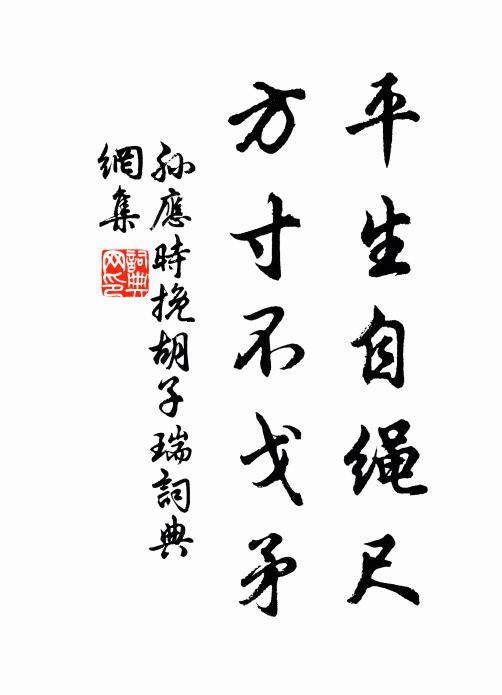 平生自绳尺
方寸不戈矛
孙應時挽胡子瑞詞典
網集
詞典
网印